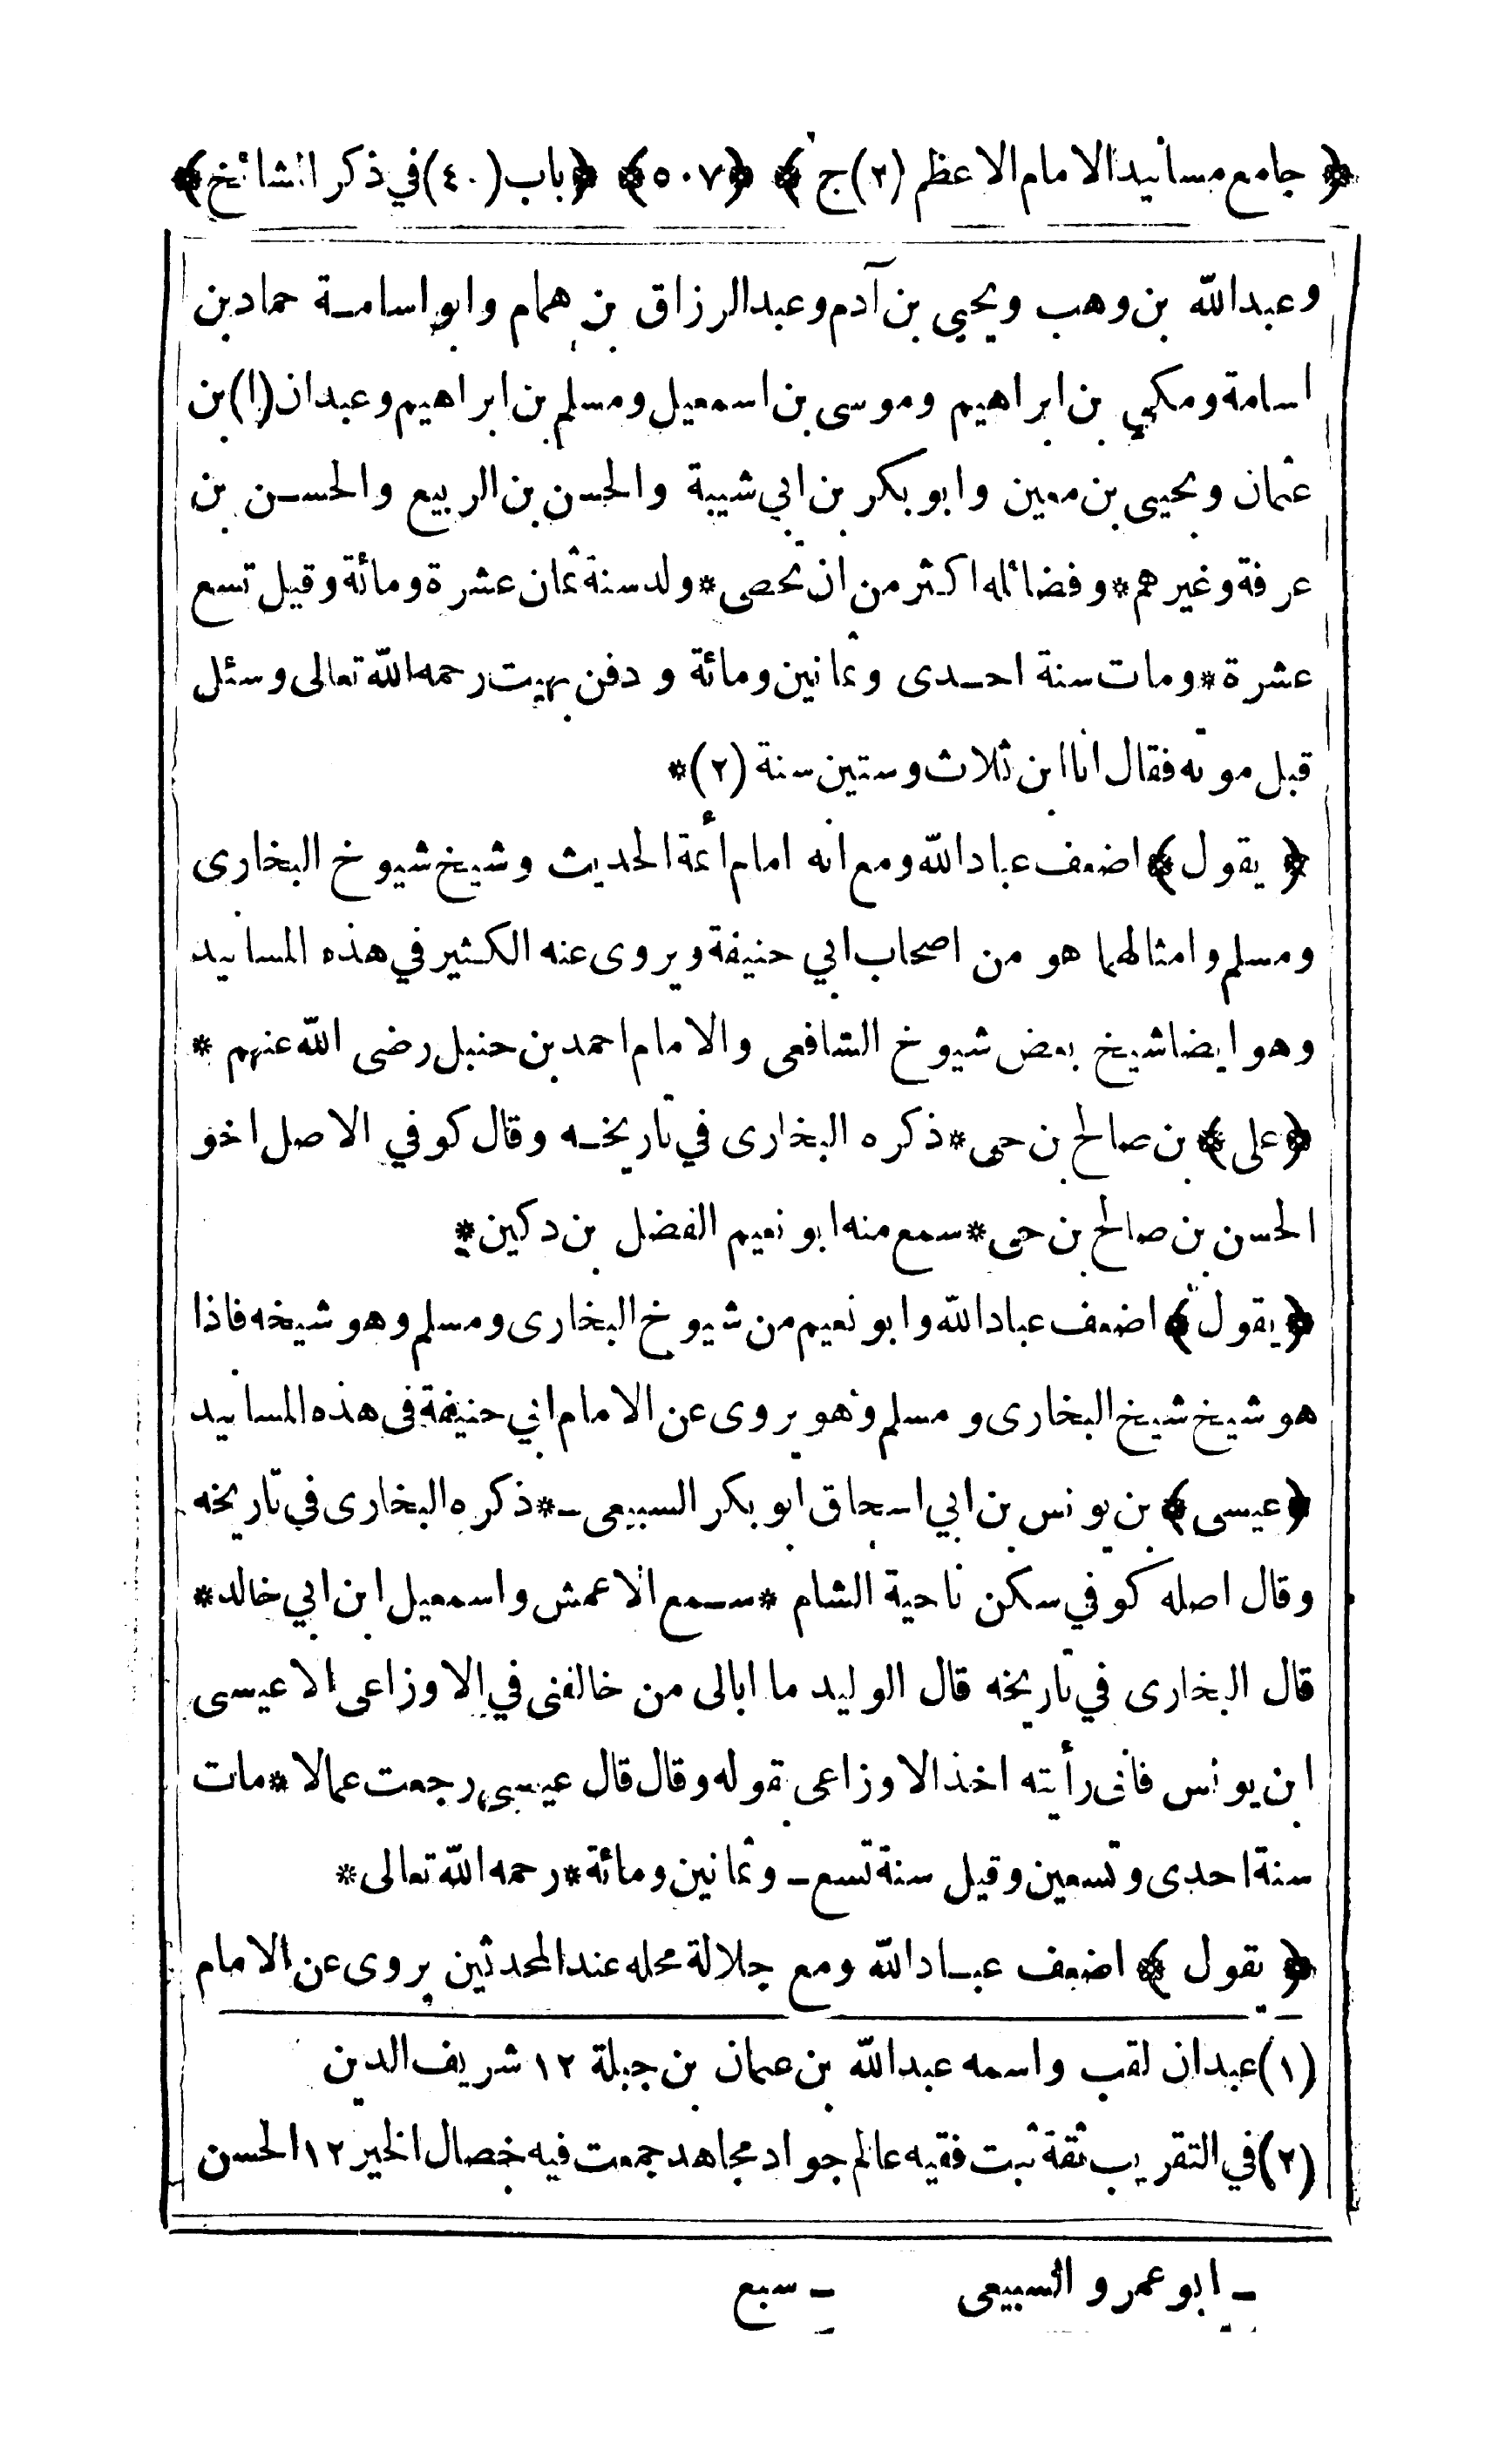 ﴿ جامع مسانيد الامام الاعظم (٢) ج ﴾ ﴿٥٠٧﴾ ﴿باب (٤٠) في ذكر المشائخ﴾
وعبدالله بن وهب ويحيي بن آدم وعبدالرزاق بن همام وابو اسامة حماد بن
اسامة ومكي بن ابراهيم وموسى بن اسمعيل ومسلم بن ابراهيم وعبدان (١) بن
عثمان ويحيى بن معين وابو بكر بن ابي شيبة والحسن بن الربيع والحسن بن
عرفة وغيرهم * وفضائله اكثر من ان تحصى * ولد سنة ثمان عشرة ومائة وقيل تسع
عشرة * ومات سنة احدى وثمانين ومائة ودفن بهيت رحمه الله تعالى وسئل
قبل موته فقال انا ابن ثلاث وستين سنة (٢) *
﴿ يقول ﴾ اضعف عباد الله ومع انه امام أئمة الحديث وشيخ شيوخ البخارى
ومسلم وامثالهما هو من اصحاب ابي حنيفة ويروى عنه الكثير في هذه المسانيد
وهو ايضا شيخ بعض شيوخ الشافعى والامام احمد بن حنبل رضى الله عنهم *
﴿على﴾ بن صالح بن حى * ذكره البخارى في تاريخه وقال كوفي الاصل اخو
الحسن بن صالح بن حى * سمع منه ابو نعيم الفضل بن دكين *
﴿يقول﴾ اضعف عباد الله وابو نعيم من شيوخ البخارى ومسلم وهو شيخه فاذا
هو شيخ شيخ البخارى و مسلم وهو يروى عن الامام ابي حنيفة فى هذه المسانيد
﴿عيسى﴾ بن يونس بن ابي اسحاق ابو بكر السبيعى ـ * ذكره البخارى في تاريخه
وقال اصله كوفي سكن ناحية الشام * سمع الاعمش واسمعيل ابن ابي خالد *
قال البخارى في تاريخه قال الوليد ما ابالى من خالفنى في الاوزاعى الا عيسى
ابن يونس فانى رأيته اخذ الاوزاعى بقوله وقال قال عيسى رجعت عمالا * مات
سنة احدى وتسعين وقيل سنة تسع ـ وثمانين ومائة * رحمه الله تعالى *
﴿ يقول ﴾ اضعف عباد الله ومع جلالة محله عند المحدثين يروى عن الامام
(١) عبدان لقب واسمه عبدالله بن عثمان بن جبلة ١٢ شريف الدين
(٢) في التقريب ثقة ثبت فقيه عالم جواد مجاهد جمعت فيه خصال الخير ١٢ الحسن
ـ ابو عمرو السبيعى ـ سبع